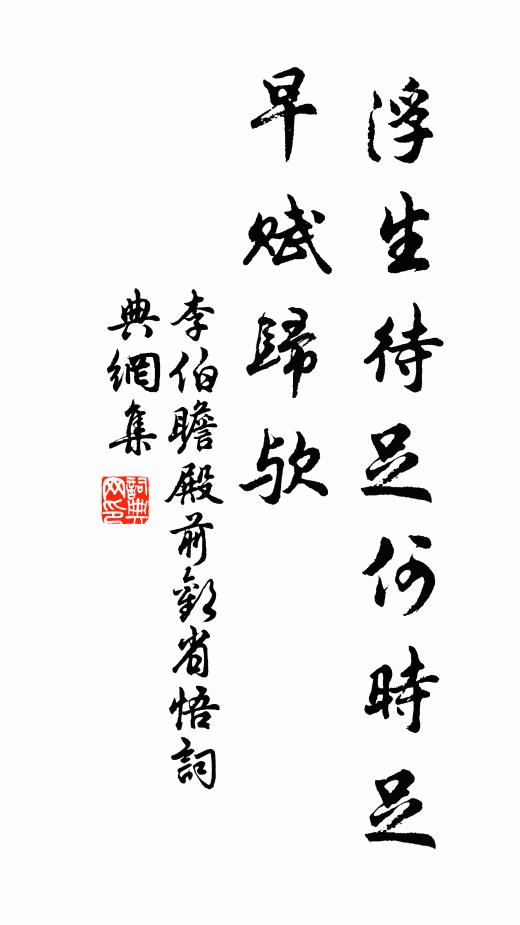 浮生待足何時足
早賦歸欤
李伯瞻殿前歡省悟詞
典網集
詞典
网印